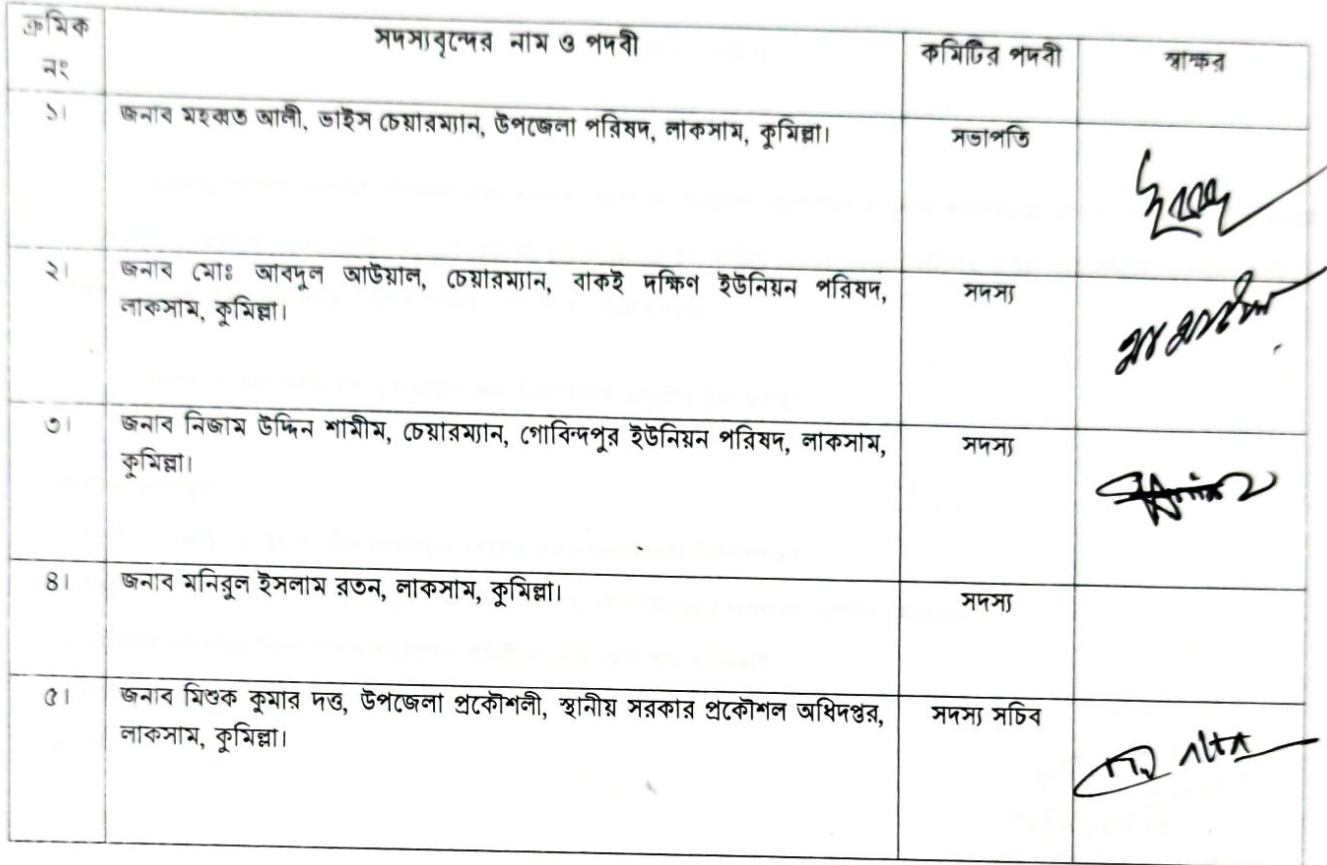 ক্রমিক নং সদস্যবৃন্দের নাম ও পদবী কমিটির পদবী স্বাক্ষর
১। জনাব মহব্বত আলী, ভাইস চেয়ারম্যান, উপজেলা পরিষদ, লাকসাম, কুমিল্লা। সভাপতি
২। জনাব মোঃ আবদুল আউয়াল, চেয়ারম্যান, বাকই দক্ষিণ ইউনিয়ন পরিষদ, সদস্য
লাকসাম, কুমিল্লা।
৩। জনাব নিজাম উদ্দিন শামীম, চেয়ারম্যান, গোবিন্দপুর ইউনিয়ন পরিষদ, লাকসাম, সদস্য
কুমিল্লা।
৪। জনাব মনিরুল ইসলাম রতন, লাকসাম, কুমিল্লা। সদস্য
৫। জনাব মিশুক কুমার দত্ত, উপজেলা প্রকৌশলী, স্থানীয় সরকার প্রকৌশল অধিদপ্তর, সদস্য সচিব
লাকসাম, কুমিল্লা।